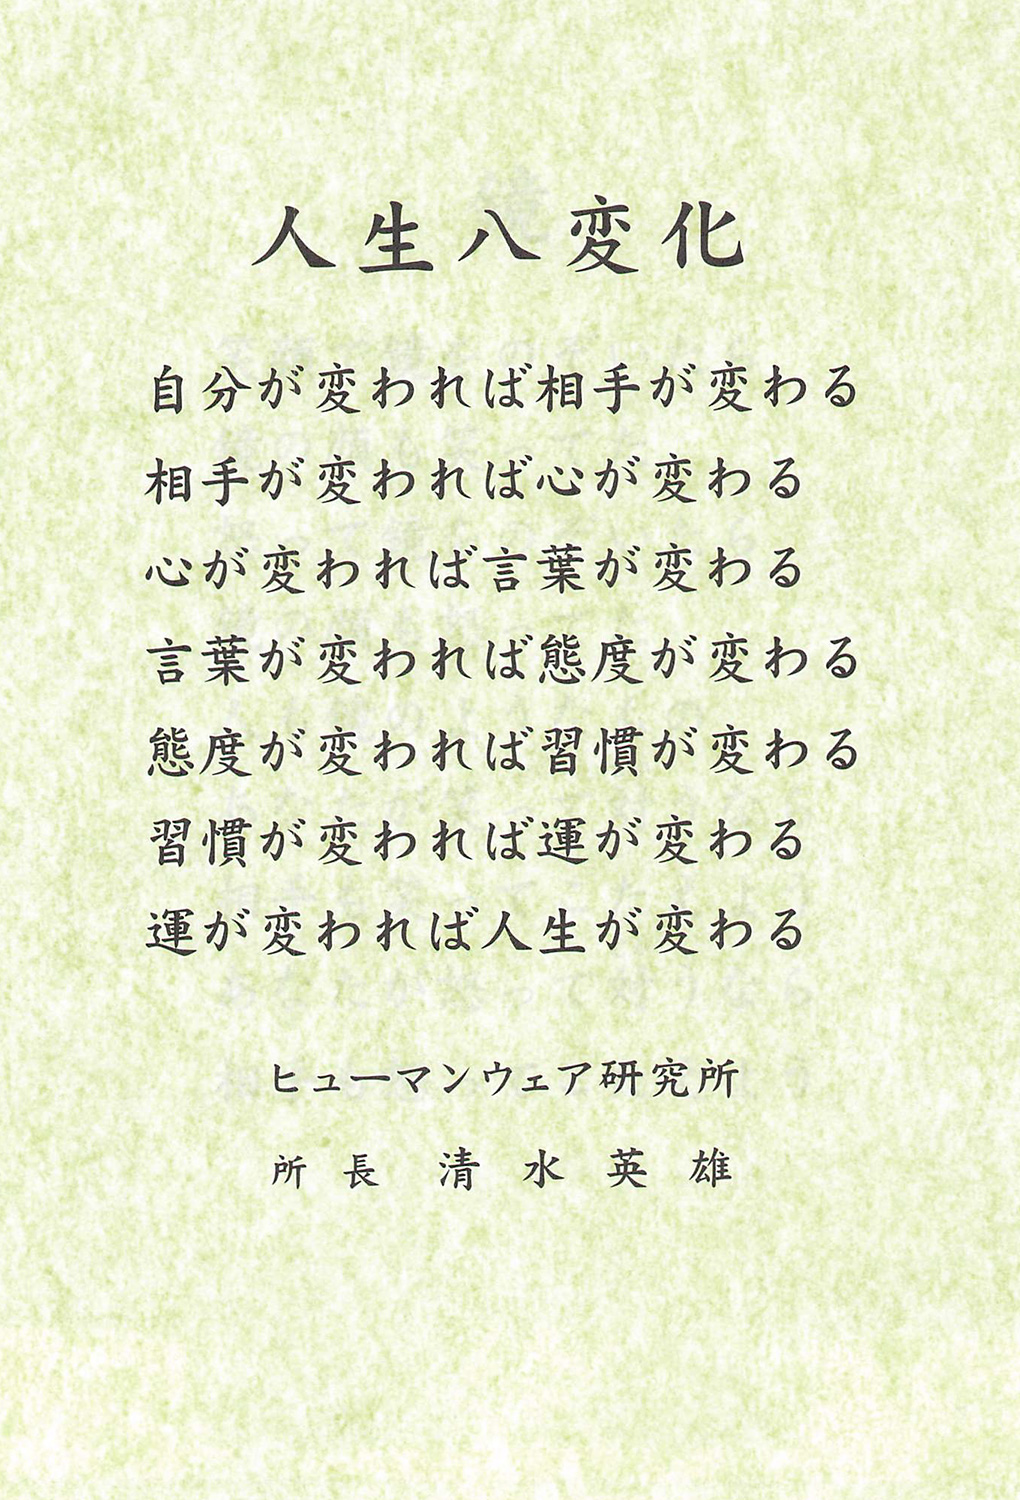 人生八変化
自分が変われば相手が変わる
相手が変われば心が変わる
心が変われば言葉が変わる
言葉が変われば態度が変わる
態度が変われば習慣が変わる
習慣が変われば運が変わる
運が変われば人生が変わる
ヒューマンウェア研究所
所長 清水英雄